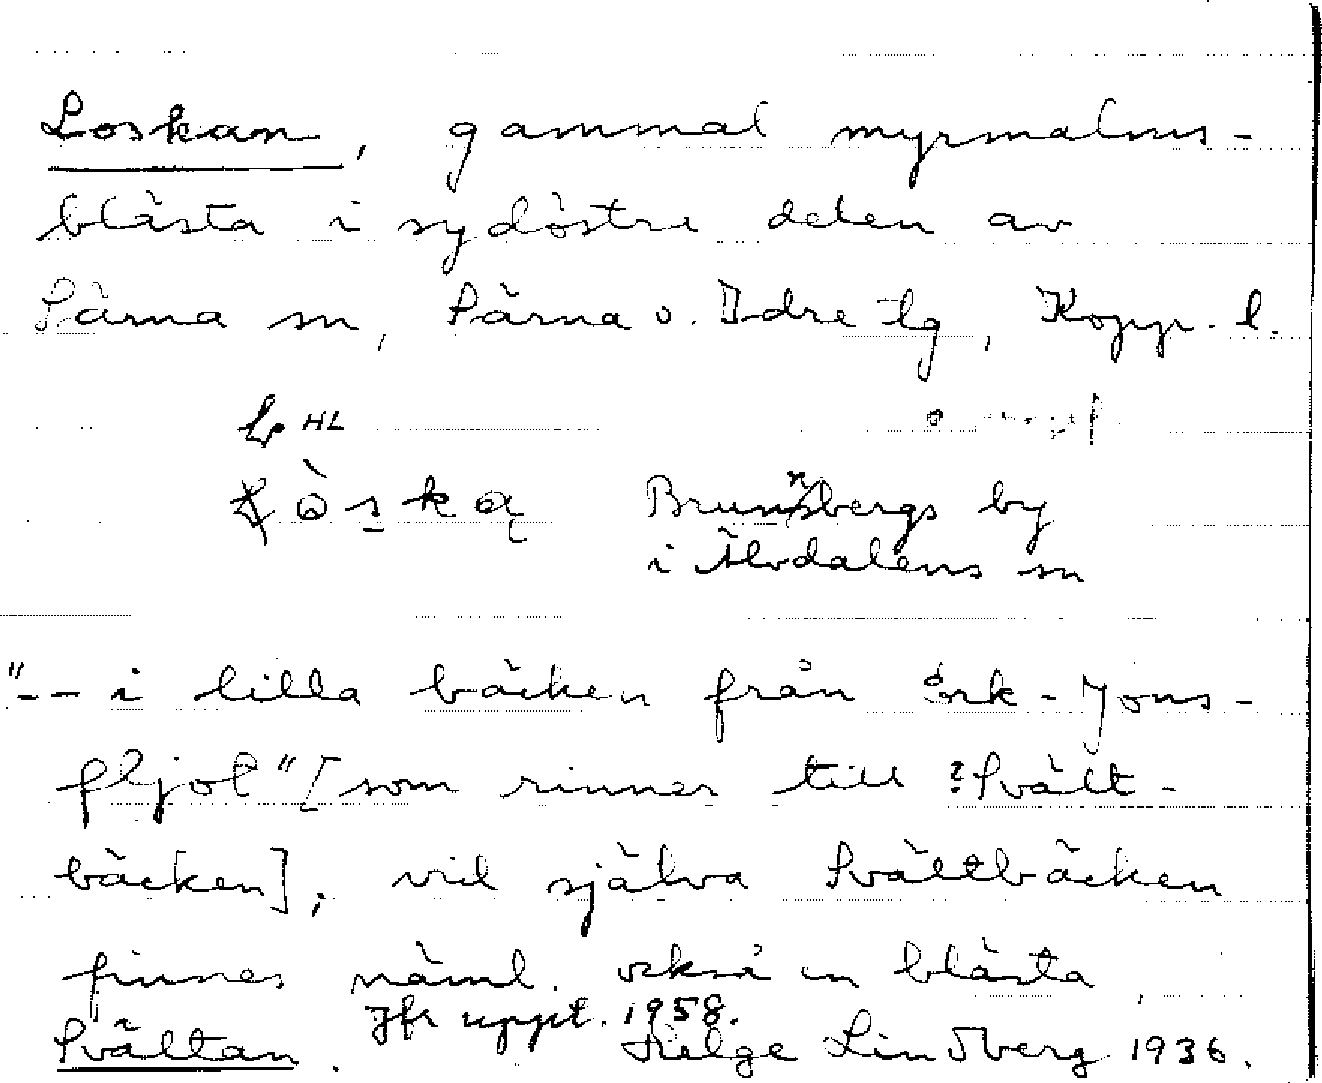 Loskan, gammal myrmalms-
blästa i sydöstra delen av
Särna sn, Särna o. Idre tg, Kopp. l.
HL
Brunnsbergs by
i Älvdalens sn
"-- i lilla bäcken från Erk-Jons-
fljot" [som rinner till ? Svält-
bäcken]; vid själva Svältbäcken
finnes näml. också en blästa,
Jfr uppt. 1958.
Svältan. Helge Lindberg 1936.